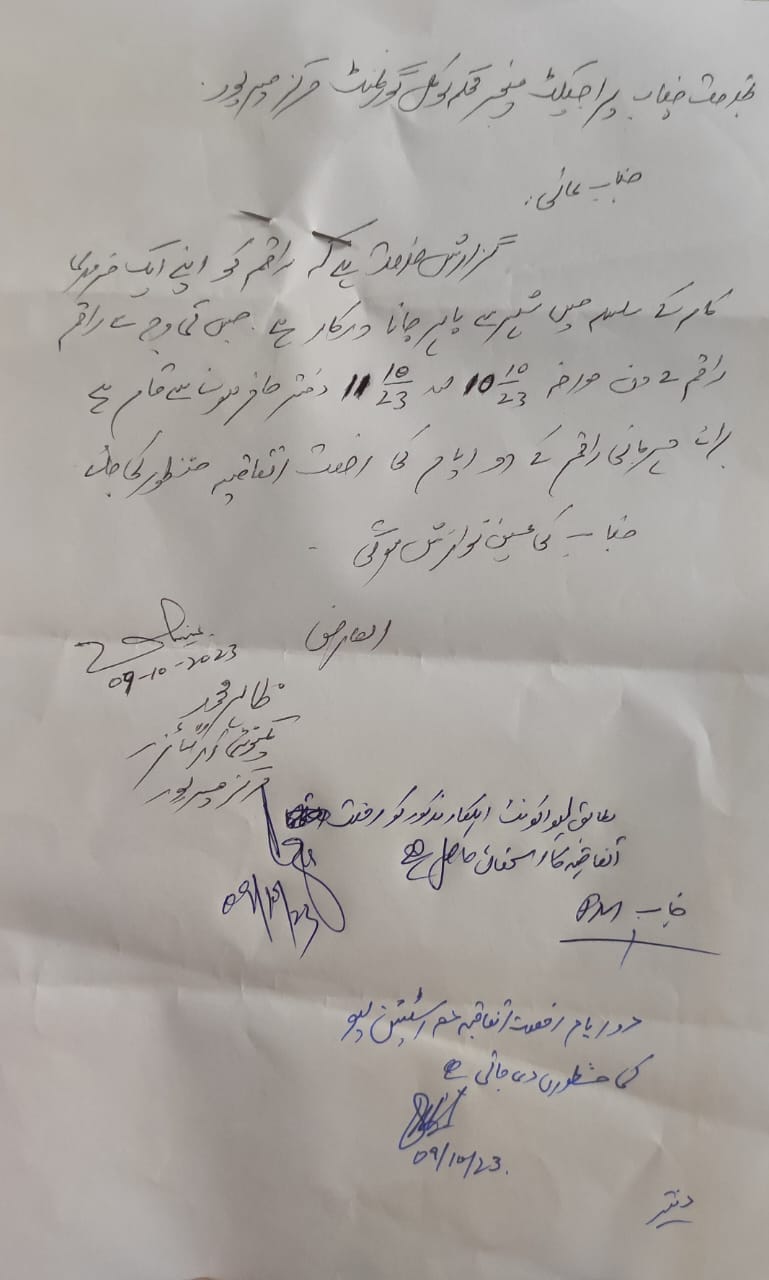 بخدمت جناب پراجیکٹ منیجر محکمہ لوکل گورنمنٹ مرکز میرپور۔
جناب عالی،
گزارش خدمت ہے کہ راقم کو اپنے ایک ضروری
کام کے سلسلہ میں شہر سے باہر جانا درکار ہے۔ جس کی وجہ سے راقم
راقم نے دن مورخہ 10 10/23 اور 11 10/23 دفتر حاضر ہونے سے قاصر ہے
برائے مہربانی راقم کے دو ایام کی رخصت اتفاقیہ منظور کی جائے
جناب کی عین نوازش ہوگی۔
العارض
09-10-2023
طاہر محمد
مرکز میرپور
مطابق لیو اکونٹ اہلکار مذکور کو رخصت
اتفاقیہ کا استحقاق حاصل ہے
09/10/23
جناب PM
دو ایام رخصت اتفاقیہ معہ اسٹیشن لیو
کی منظوری دی جاتی ہے
09/10/23.
دفتر